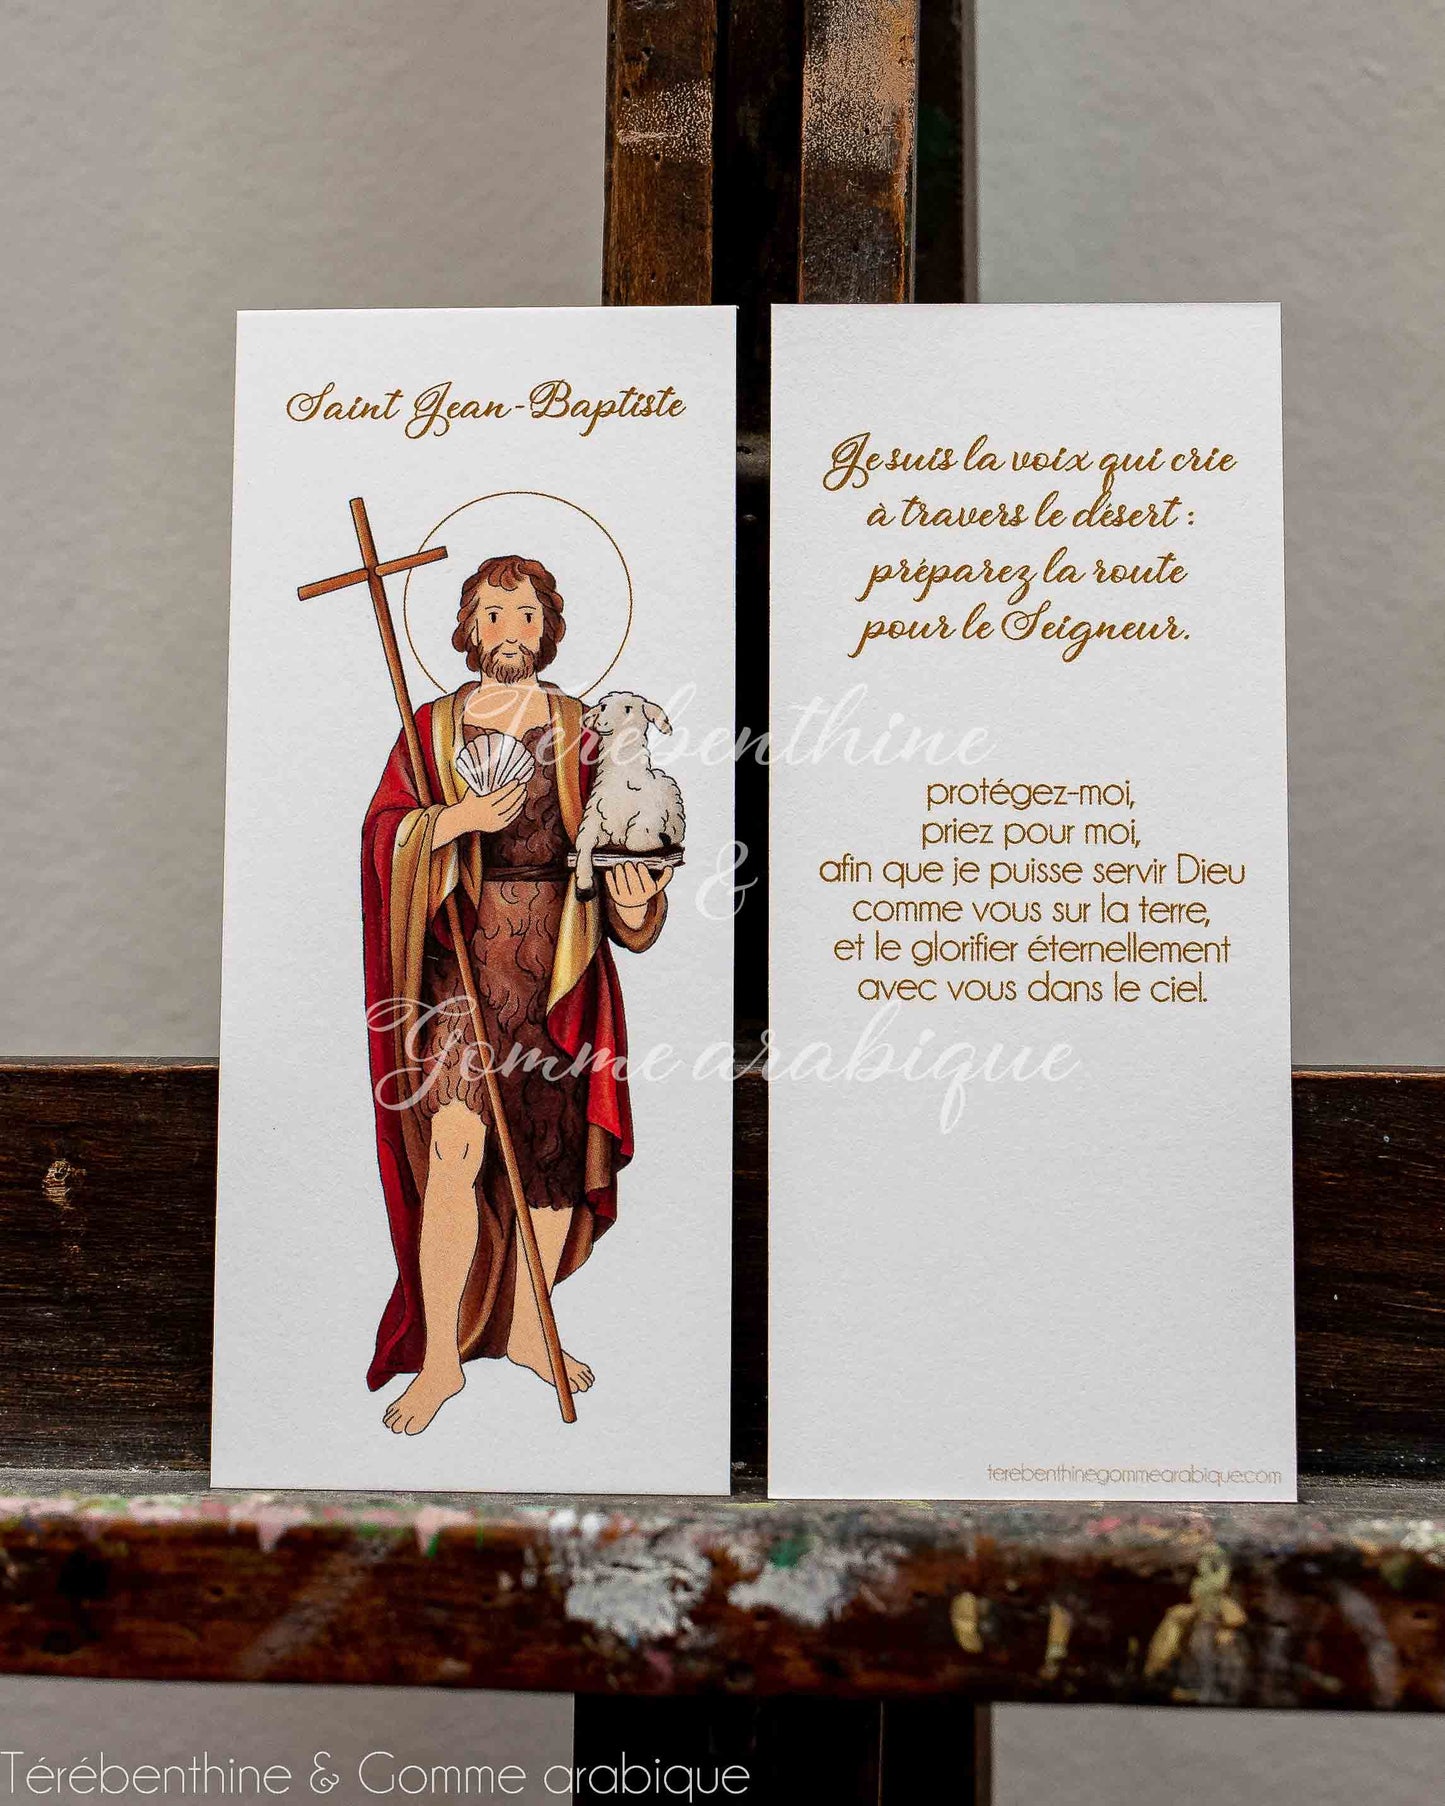 Saint Jean-Baptiste
Je suis la voix qui crie
à travers le désert :
préparez la route
pour le Seigneur.
protégez-moi,
priez pour moi,
afin que je puisse servir Dieu
comme vous sur la terre,
et le glorifier éternellement
avec vous dans le ciel.
terebenthinegommearabique.com
Térébenthine
&
Gomme arabique
Térébenthine & Gomme arabique